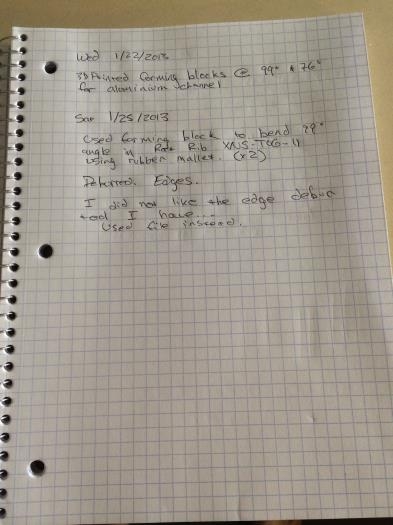 Wed 1/22/2013
3D Printed forming blocks @ 99° & 76°
for aluminium channel
Sat 1/25/2013
Used forming block to bend 99°
angle in Root Rib
using rubber mallet. (x2)
Deburred Edges.
I did not like the edge debur
tool I have...
Used file instead.